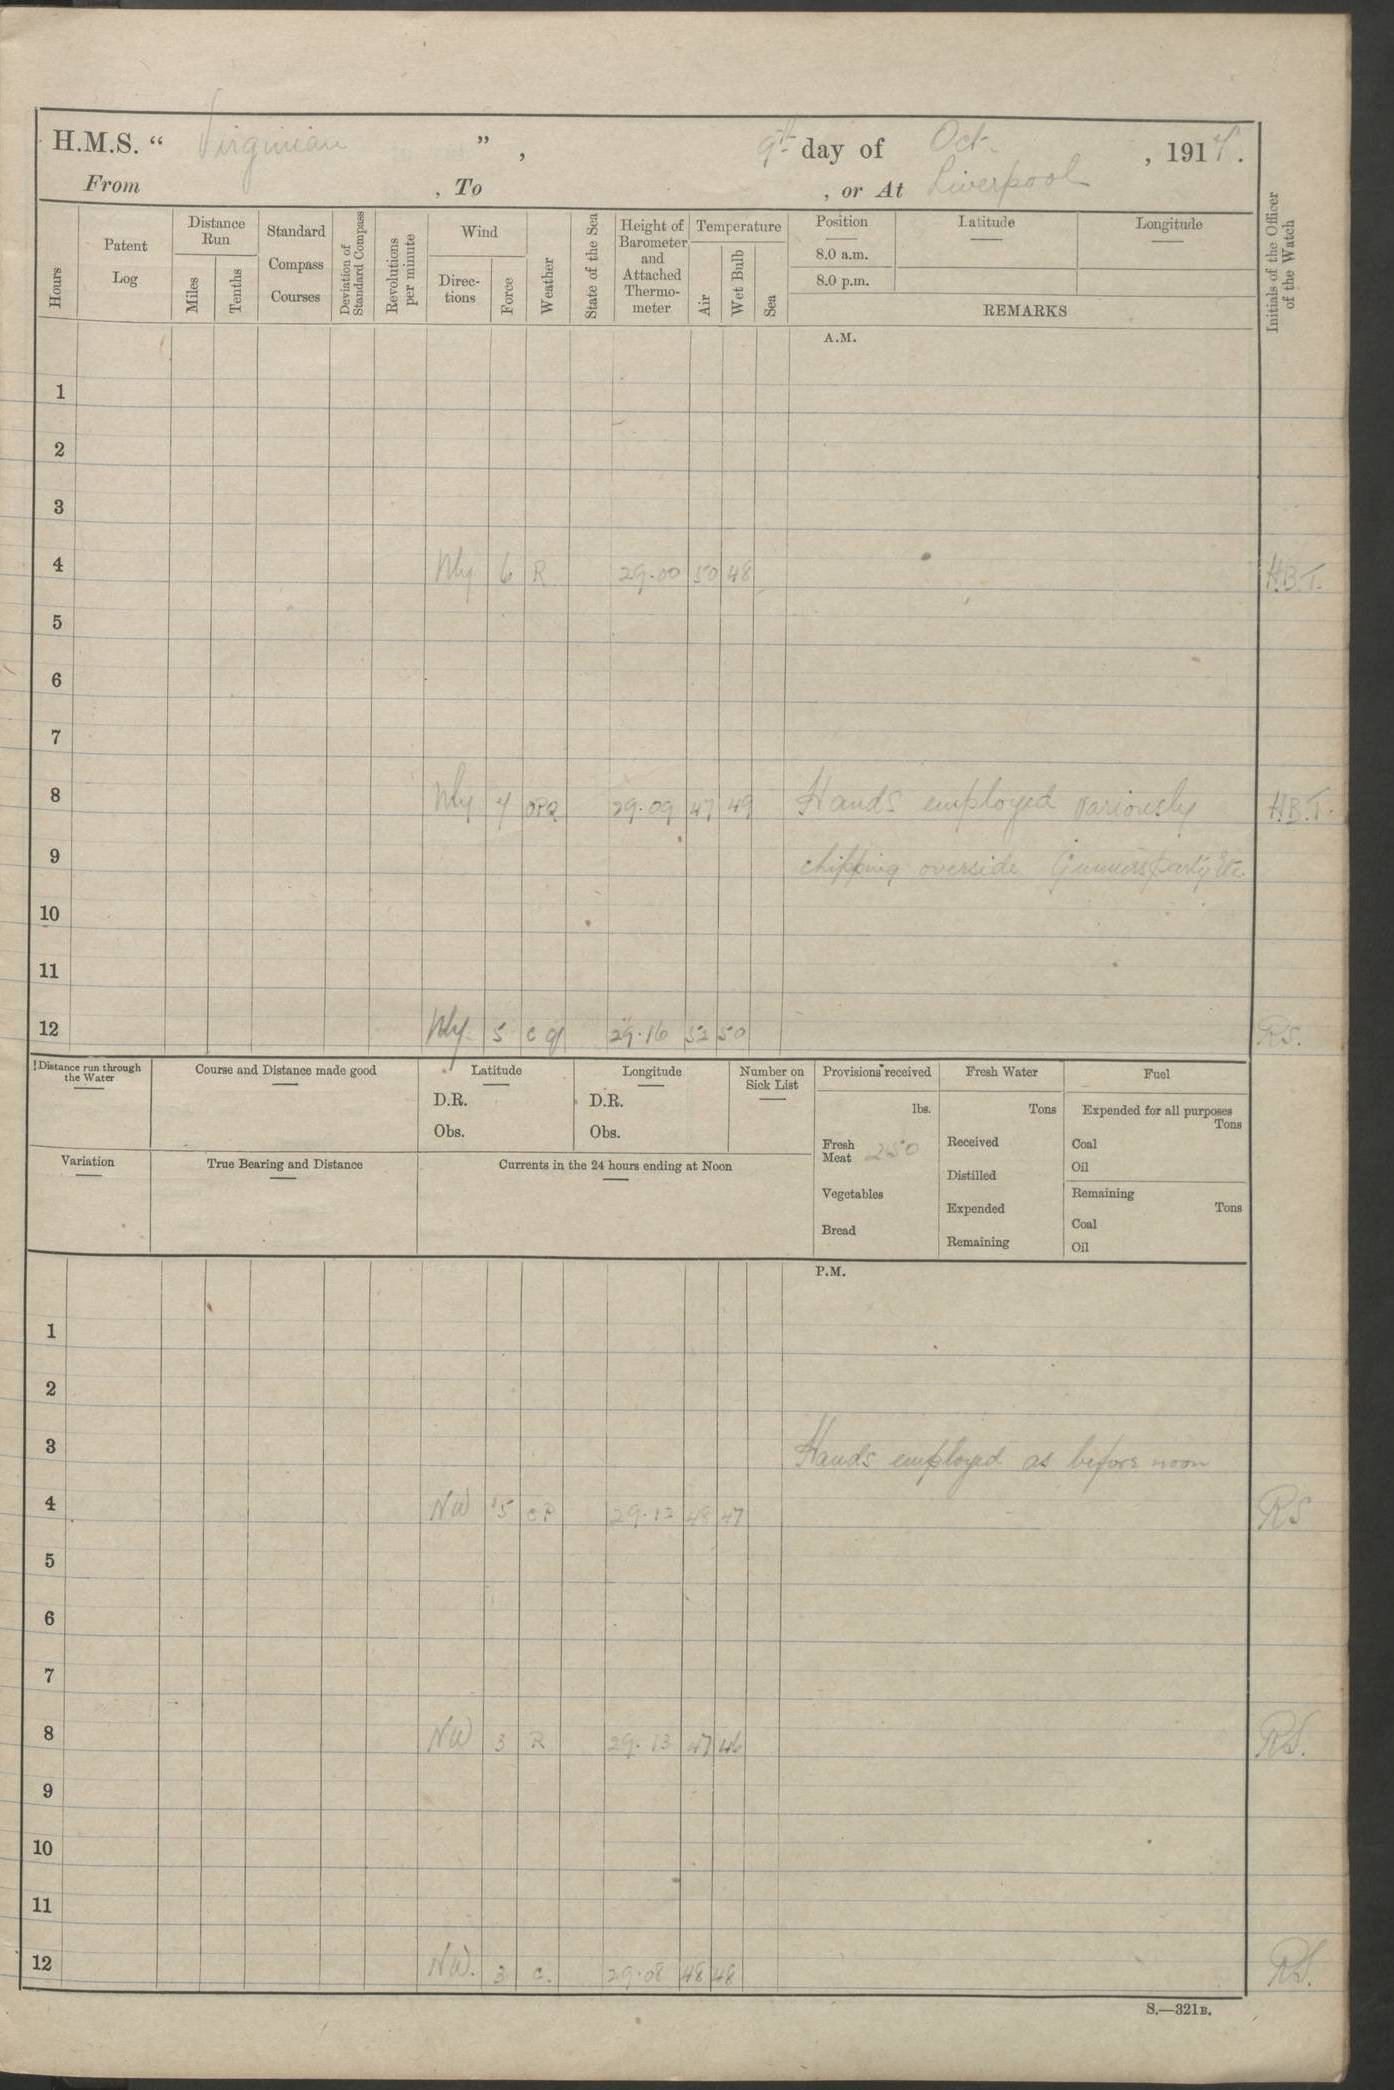 H.M.S. " Virginian ", 9th day of Oct. , 1914.
From , To , or At Liverpool
Hours
Patent Log
Distance Run
Miles
Tenths
Standard Compass Courses
Deviation of Standard Compass
Revolutions per minute
Wind
Direc-tions
Force
Weather
State of the Sea
Height of Barometer and Attached Thermo-meter
Temperature
Air
Wet Bulb
Sea
Position
8.0 a.m.
8.0 p.m.
Latitude
Longitude
REMARKS
Initials of the Officer of the Watch
A.M.
1
2
3
4 Wly 6 R 29.00 50 48 H.B.T.
5
6
7
8 Wly 4 OPQ 29.09 47 49 Hands employed variously H.B.T.
9 chipping overside Gunners party etc.
10
11
12 Wly 5 c q 29.16 52 50 RS.
Distance run through the Water
Course and Distance made good
Latitude
D.R.
Obs.
Longitude
D.R.
Obs.
Number on Sick List
Provisions received
lbs.
Fresh Meat 250
Vegetables
Bread
Fresh Water
Tons
Received
Distilled
Expended
Remaining
Fuel
Expended for all purposes
Tons
Coal
Oil
Remaining
Tons
Coal
Oil
Variation
True Bearing and Distance
Currents in the 24 hours ending at Noon
P.M.
1
2
3 Hands employed as before noon
4 NW 5 cP 29.12 48 47 RS
5
6
7
8 NW 3 R 29.13 47 46 RS.
9
10
11
12 NW. 3 c. 29.08 48 48 RS.
S.—321B.